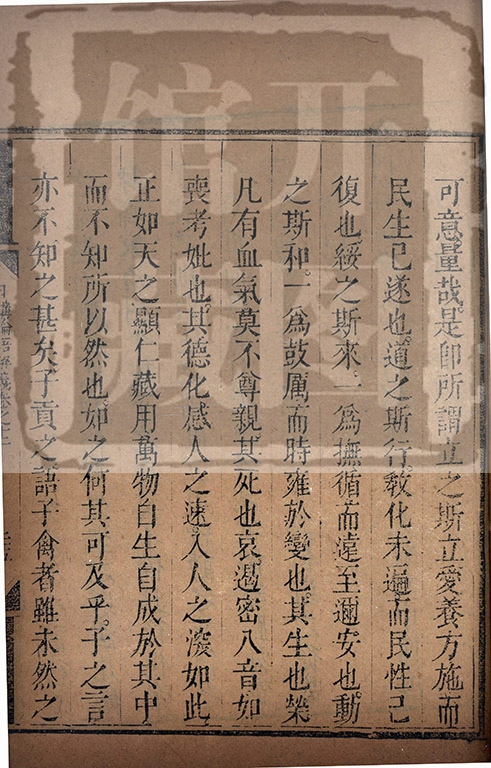 可意量哉是卽所謂立之斯立愛養方施而
民生已遂也道之斯行教化未遍而民性已
復也綏之斯來一爲撫循而遠至邇安也動
之斯和一爲鼓厲而時雍於變也其生也榮
凡有血氣莫不尊親其死也哀遏密八音如
喪考妣也其德化感人之速入人之深如此
正如天之顯仁藏用萬物自生自成於其中
而不知所以然也如之何其可及乎子之言
亦不知之甚矣子貢之語子禽者雖未然之